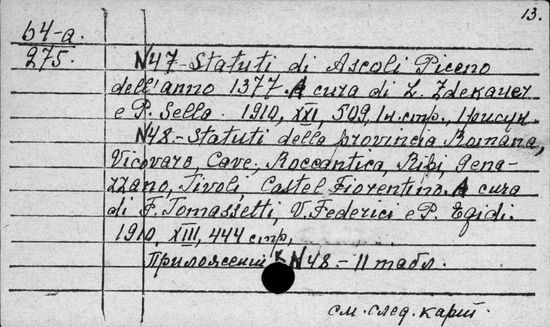 13.
64-а.
275.
N47-Statuti di Ascoli Piceno
dell'anno 1377. A cura di L. Zdekauer
e P. Sella. 1910, XXI, 509, 1 н.стр.,
N48.-Statuti della provincia Romana,
Vicovaro, Cave, Roccantica, Ripi, Gena-
zzano, Tivoli Castel Fiorentino. A cura
di F. Tomassetti, V. Federici e P. Egidi.
1910, XIII, 444 стр,
Приложений к N48.- 11 табл.
см. след. карт